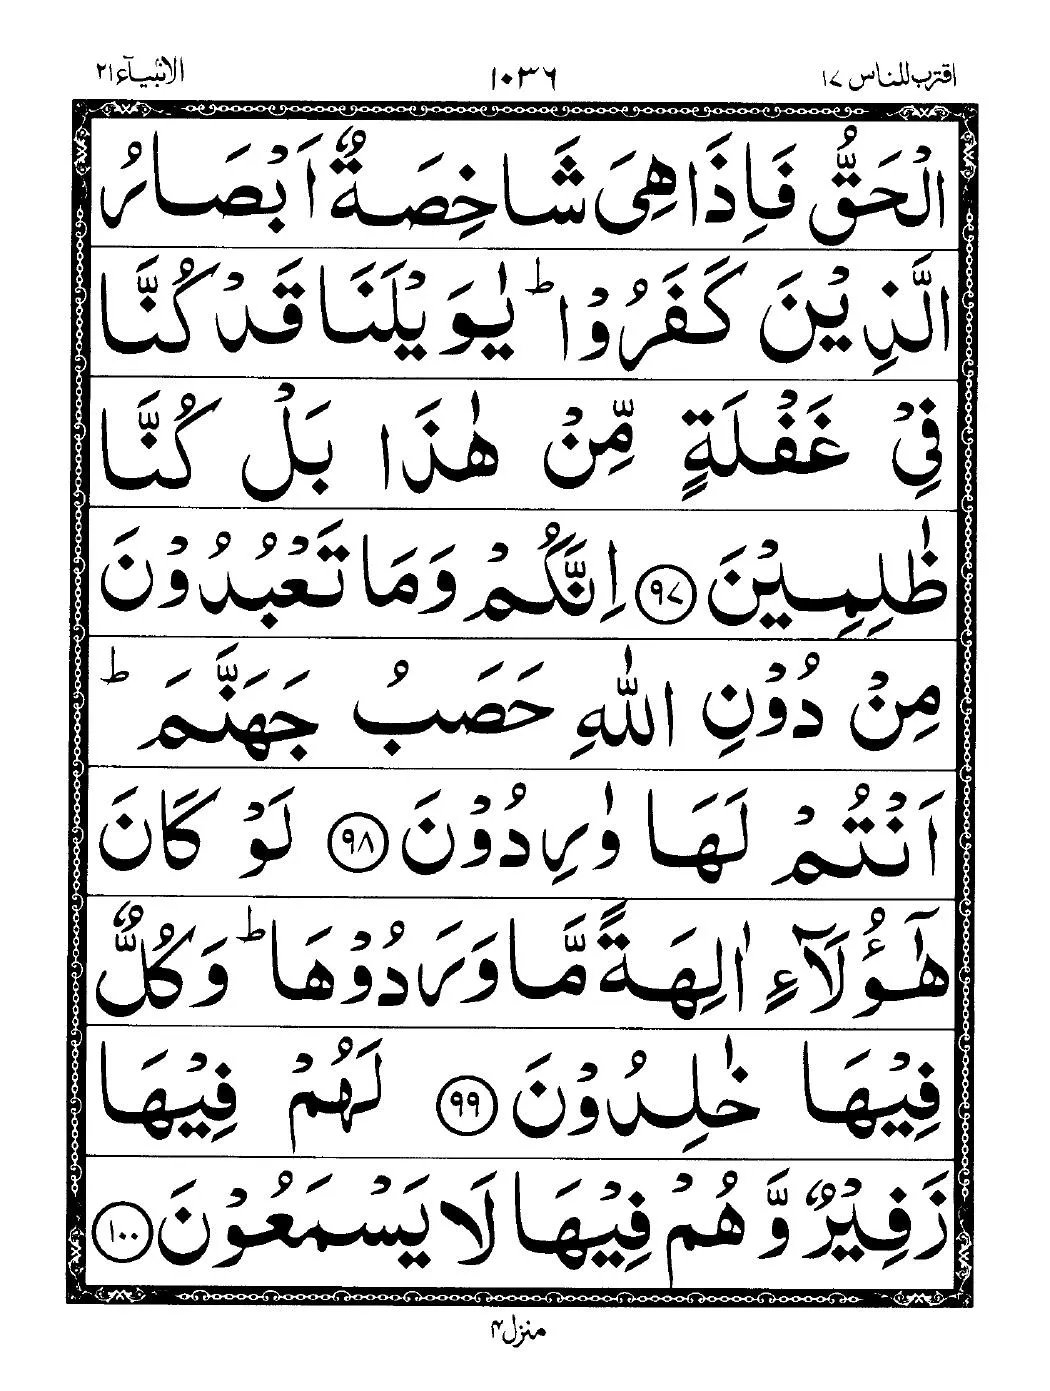 اقترب للناس ١٧ ١٠٣٦ الانبیآء ٢١
الْحَقُّ فَاِذَا هِیَ شَاخِصَةٌ اَبْصَارُ
الَّذِیْنَ كَفَرُوْا ؕ یٰوَیْلَنَا قَدْ كُنَّا
فِیْ غَفْلَةٍ مِّنْ هٰذَا بَلْ كُنَّا
ظٰلِمِیْنَ ۝٩٧ اِنَّكُمْ وَمَا تَعْبُدُوْنَ
مِنْ دُوْنِ اللّٰهِ حَصَبُ جَهَنَّمَ ؕ
اَنْتُمْ لَهَا وٰرِدُوْنَ ۝٩٨ لَوْ كَانَ
هٰۤؤُلَآءِ اٰلِهَةً مَّا وَرَدُوْهَا ؕ وَكُلٌّ
فِیْهَا خٰلِدُوْنَ ۝٩٩ لَهُمْ فِیْهَا
زَفِیْرٌ وَّهُمْ فِیْهَا لَا یَسْمَعُوْنَ ۝١٠٠
منزل ۴